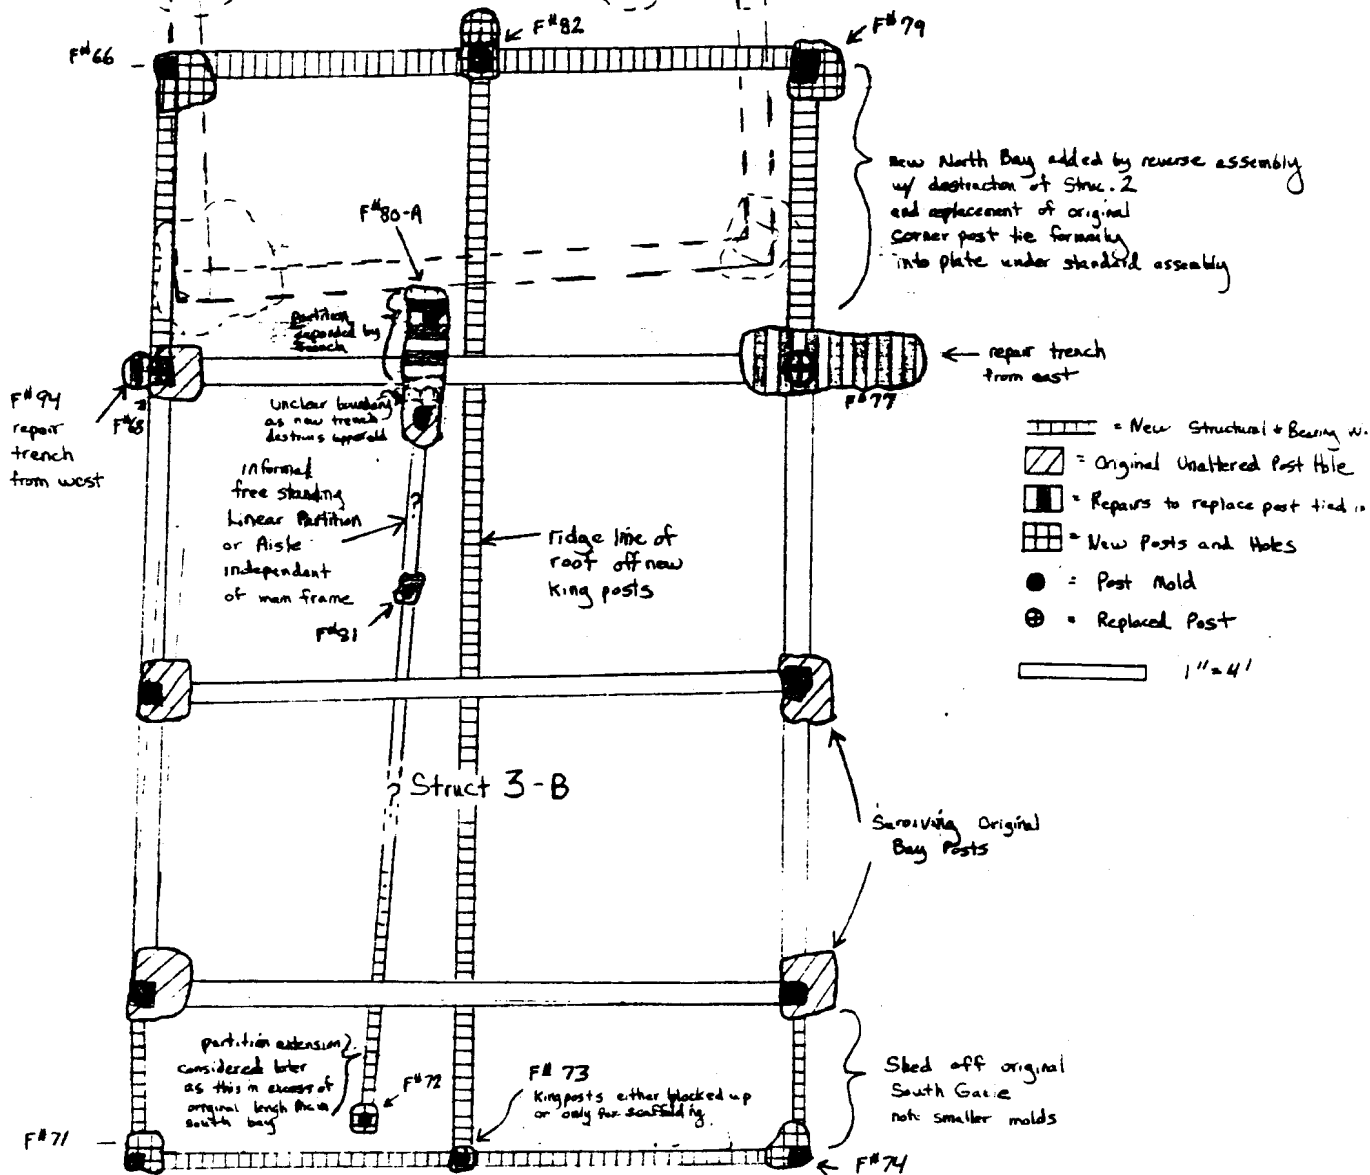 F#82
F#79
F#66
new North Bay added by reverse assembly
w/ destruction of Struc. 2
and replacement of original
corner post tie formaily
into plate under standard assembly
F#80-A
partition
expanded by
trench
repair trench
from east
F#77
F#94
repair
trench
from west
F#68
Unclear boundary
as new trench
destroys upper old
informal
free standing
Linear Partition
or Aisle
independent
of main frame
?
F#81
ridge line of
roof off new
king posts
= New Structural + Bearing W.
= Original Unaltered Post Hole
= Repairs to replace post tied in
= New Posts and Holes
= Post Mold
= Replaced Post
1" = 4'
? Struct 3-B
Surviving Original
Bay Posts
partition extension?
considered later
as this in excess of
original length main
south bay
F#72
F# 73
Kingposts either blocked up
or only for scaffolding
Shed off original
South Gable
note smaller molds
F#71
F#74